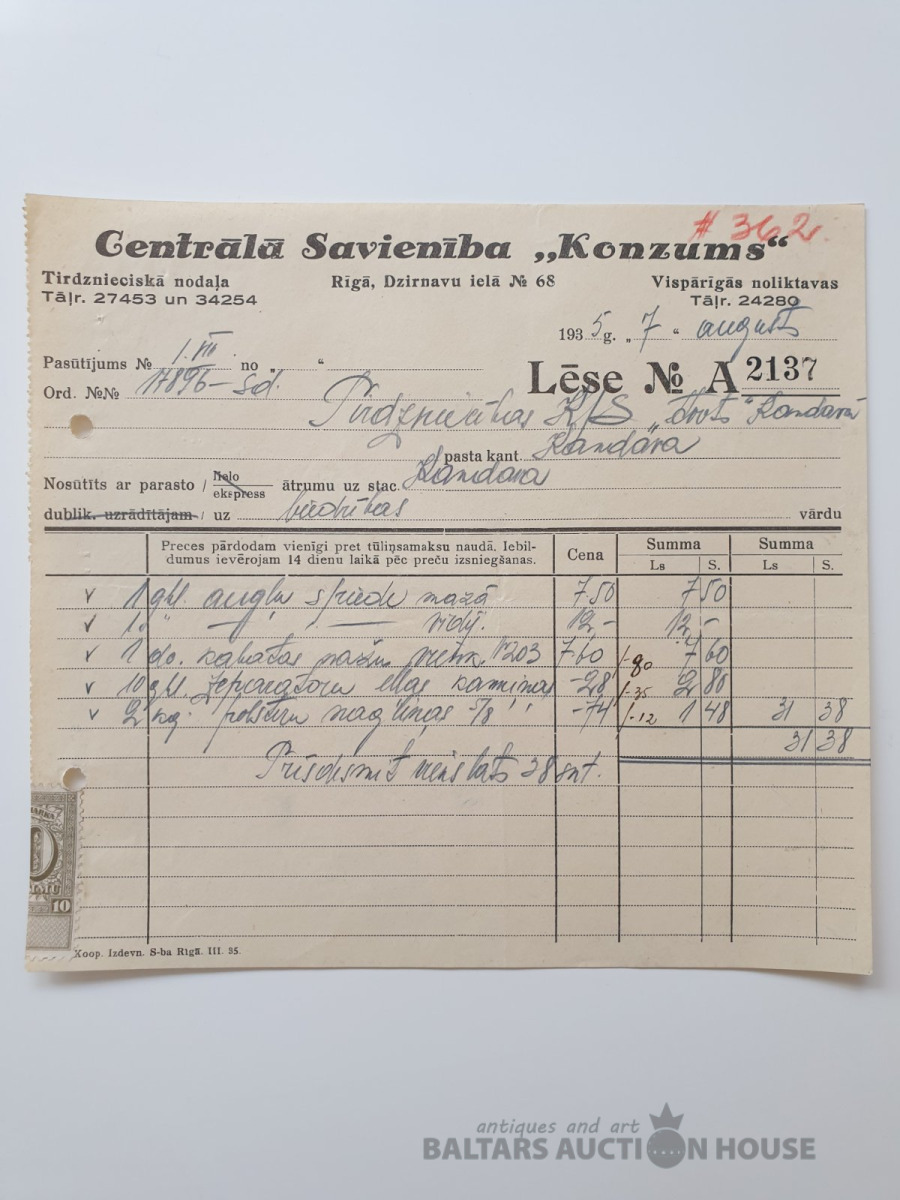 # 362.
Centrālā Savienība „Konzums“
Tirdznieciskā nodaļa Rīgā, Dzirnavu ielā № 68 Vispārīgās noliktavas
Tāļr. 27453 un 34254 Tāļr. 24280
1935 g. „7“ augusts
Pasūtījums № 1. VIII no „ “
Lēse № A 2137
Ord. №№ 17896- Sd.
Tirdzniecības K/S Kandavā
pasta kant. Kandava
Nosūtīts ar parasto / lielo ekspress ātrumu uz stac. Kandava
dublik. uzrādītājam / uz biedrības vārdu
Preces pārdodam vienīgi pret tūliņsamaksu naudā. Iebil-
dumus ievērojam 14 dienu laikā pēc preču izsniegšanas.
Cena Summa Summa
Ls S. Ls S.
v 1 gbl. augļu spiede mazā 7.50 7 50
v 1 " — " — vidēj. 12,- 12,-
v 1 do. kabatas 1203 7 60 1-90 7 60
v 10 gbl. eļļas kamiņas -28 1-35 2 80
v 2 kg. nagliņas 5/8" -74 1-12 1 48 31 38
31 38
Trīsdesmit viens lats 38 snt.
10
Koop. Izdevn. S-ba Rīgā. III. 35.
antiques and art
BALTARS AUCTION HOUSE